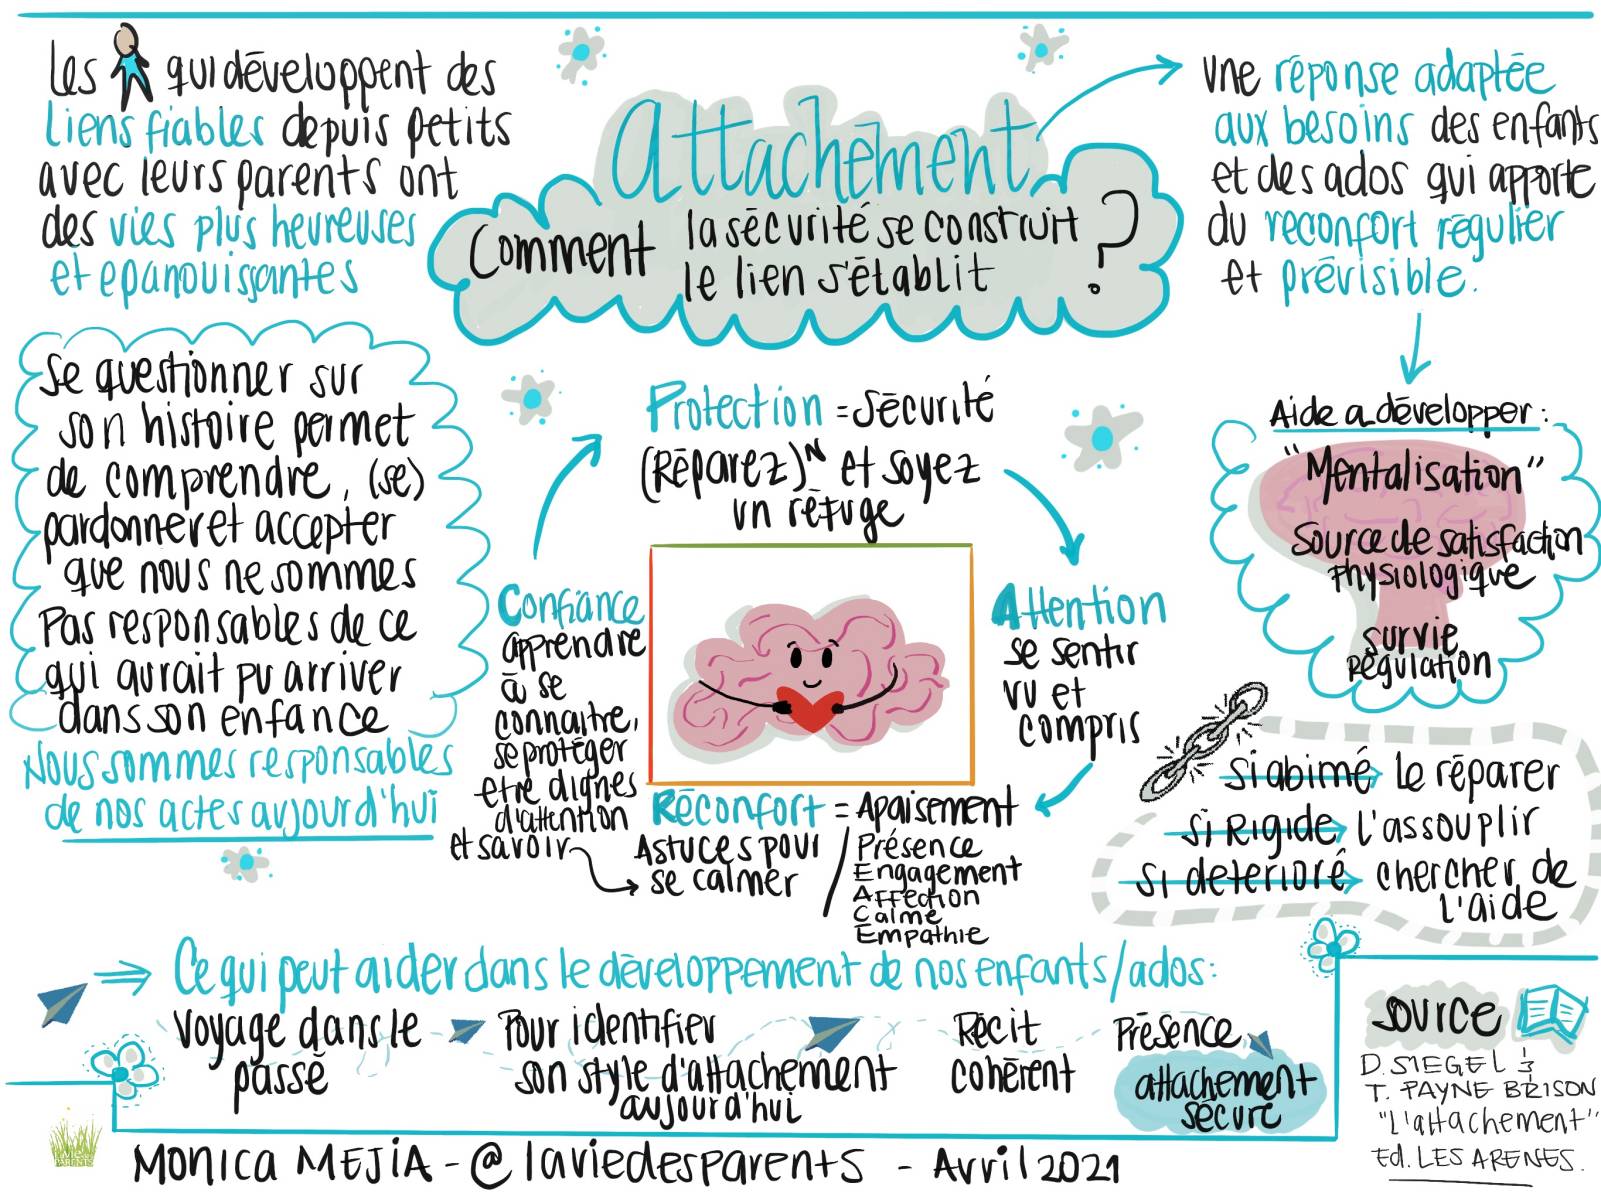 Les qui développent des
liens fiables depuis petits
avec leurs parents ont
des vies plus heureuses
et epanouissantes
Attachement
Comment la sécurité se construit
le lien s'établit ?
une réponse adaptée
aux besoins des enfants
et des ados qui apporte
du réconfort régulier
et prévisible.
Se questionner sur
son histoire permet
de comprendre, (se)
pardonner et accepter
que nous ne sommes
Pas responsables de ce
qui aurait pu arriver
dans son enfance
Nous sommes responsables
de nos actes aujourd'hui
Protection = Sécurité
(Réparez)ᴺ et soyez
un refuge
Attention
se sentir
vu et
compris
Réconfort = Apaisement
Astuces pour
se calmer
/ Présence
Engagement
Affection
Calme
Empathie
Confiance
apprendre
à se
connaitre,
se protéger
etre dignes
d'attention
et savoir
Aide a développer :
"Mentalisation"
Source de satisfaction
Physiologique
survie
Régulation
Si abimé le réparer
Si Rigide l'assouplir
Si deterioré chercher de
l'aide
Ce qui peut aider dans le développement de nos enfants/ados :
Voyage dans le
passé
Pour identifier
son style d'attachement
aujourd'hui
Récit
cohérent
Présence
attachement
sécure
source
D. SIEGEL &
T. PAYNE BRISON
"L'attachement"
Ed. LES ARENES.
PARENTS
Monica MEJIA - @laviedesparents - Avril 2021